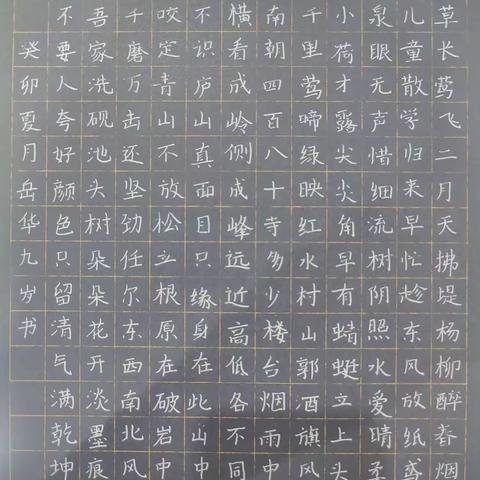 草长莺飞二月天拂堤杨柳醉春烟
儿童散学归来早忙趁东风放纸鸢
泉眼无声惜细流树阴照水爱晴柔
小荷才露尖尖角早有蜻蜓立上头
千里莺啼绿映红水村山郭酒旗风
南朝四百八十寺多少楼台烟雨中
横看成岭侧成峰远近高低各不同
不识庐山真面目只缘身在此山中
咬定青山不放松立根原在破岩中
千磨万击还坚劲任尔东西南北风
吾家洗砚池头树朵朵花开淡墨痕
不要人夸好颜色只留清气满乾坤
癸卯夏月岳华九岁书